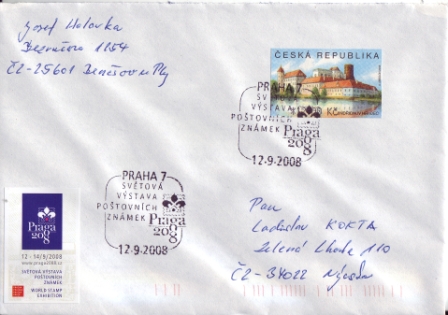 Josef
1254
CZ-25601 Benešov
ČESKÁ REPUBLIKA
PRAHA 7
SVĚTOVÁ
VÝSTAVA
POŠTOVNÍCH
ZNÁMEK Praga
2008
12-9-2008
PRAHA 7
SVĚTOVÁ
VÝSTAVA
POŠTOVNÍCH
ZNÁMEK Praga
2008
12-9-2008
Praga
2008
12 - 14/9/2008
www.praga2008.cz
SVĚTOVÁ VÝSTAVA
POŠTOVNÍCH
ZNÁMEK
WORLD STAMP
EXHIBITION
Pan
Ladislav KOKTA
Zelená Lhota 110
CZ-34022 Nýrsko